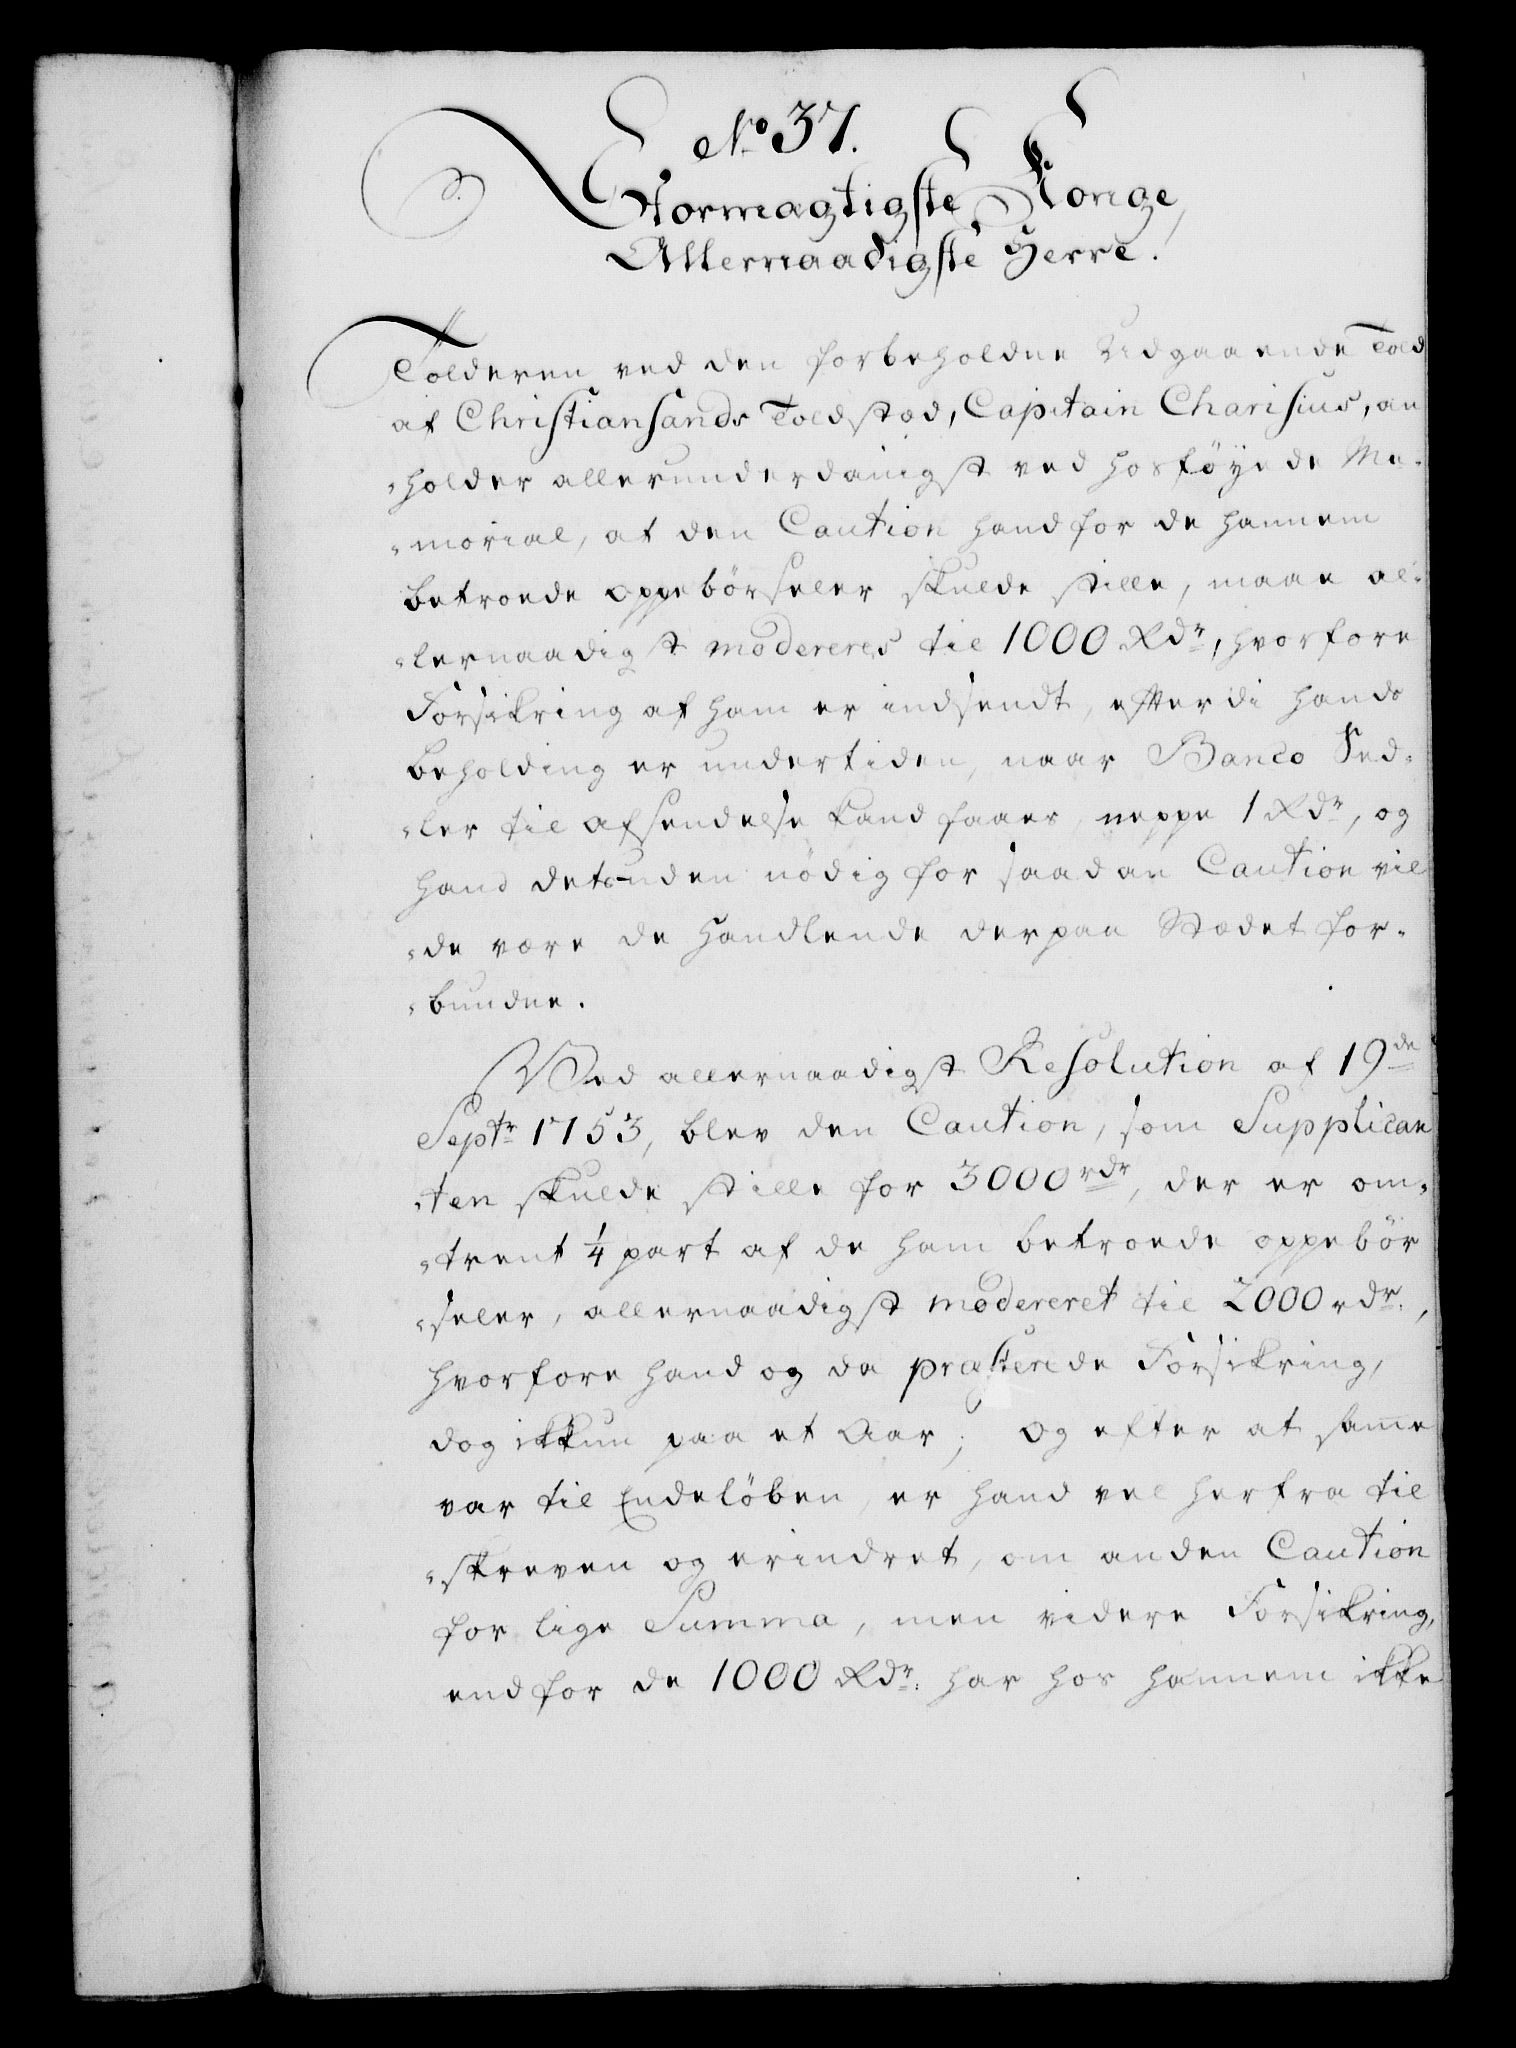 No 37.
Stormægtigste Konge,
Allernaadigste Herre.
Tolderen ved den forbeholdne Udgaaende Told
af Christiansands Toldstæd, Capitain Charisius, an
-holder allerunderdanigst ved hosföyede Me-
-morial, at den Caution hand for de hannem
betroede oppebörseler skulde stille, maae al-
-lernaadigst modereres til 1000 Rdr, hvorfore
Forsikring af ham er indsendt, efterdi hands
beholding er undertiden, naar Banco Sed-
-ler til afsendelse kand faaes, neppe 1 Rdr, og
hand desuden nödig for saadan Caution vil
-de være de Handlende der paa Stædet for-
-bunden.
Ved allernaadigst Resolution af 19de
Septr 1753, blev den Caution, som Supplican
-ten skulde stille for 3000 rdr, der er om-
-trent 1/4 part af de ham betroede oppebör
-seler, allernaadigst modereret til 2000 rdr.,
hvorfore hand og da præsterede Forsikring,
dog ikkun paa et Aar; og efter at samme
var til Endelöben, er hand vel herfra til
-skreven og erindret, om anden Caution
for lige Summa, men videre Forsikring,
end for de 1000 Rdr. har hos hannem ikke